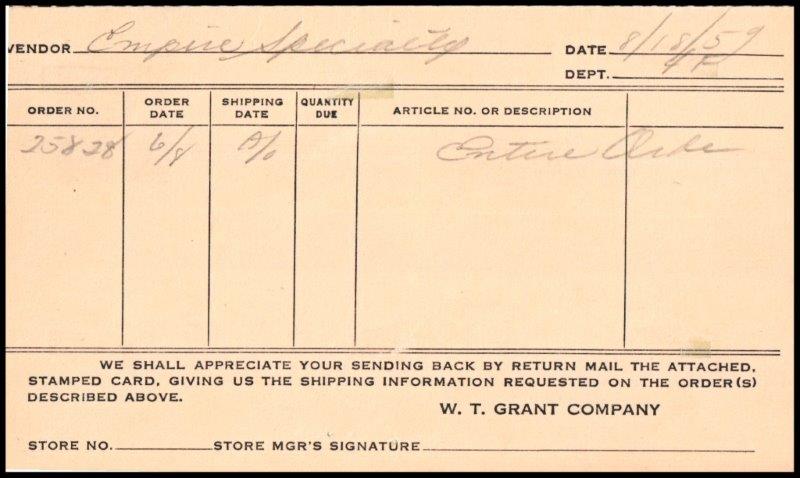 VENDOR Empire Specialty DATE 8/18/59
DEPT.
ORDER NO. ORDER DATE SHIPPING DATE QUANTITY DUE ARTICLE NO. OR DESCRIPTION
25828 6/8 A/O Entire Order
WE SHALL APPRECIATE YOUR SENDING BACK BY RETURN MAIL THE ATTACHED,
STAMPED CARD, GIVING US THE SHIPPING INFORMATION REQUESTED ON THE ORDER(S)
DESCRIBED ABOVE.
W. T. GRANT COMPANY
STORE NO. STORE MGR'S SIGNATURE